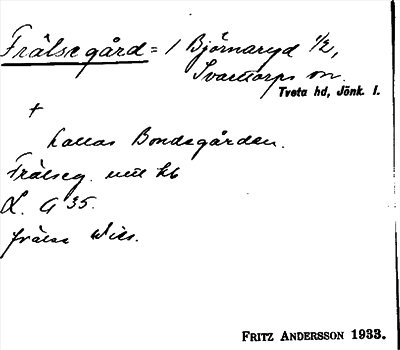 Frälsegård = 1 Björnaryd 1/2,
Svarttorps sn.
Tveta hd, Jönk. l.
+
kallas Bondegården.
Frälseg. enl kb
L. G 35.
frälse
FRITZ ANDERSSON 1933.